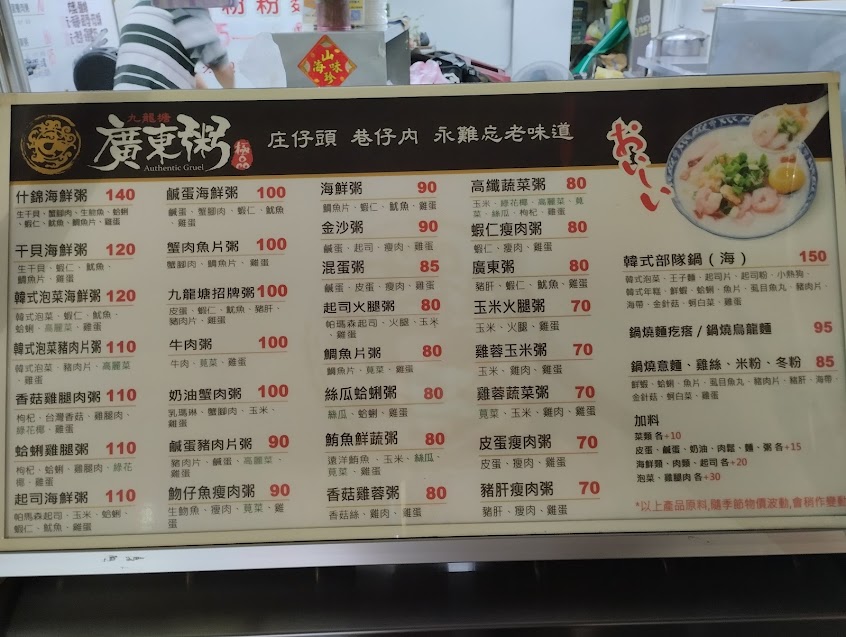 粉粉麵
山
海味
珍
九龍塘
廣東粥
Authentic Gruel
庄仔頭 巷仔內 永難忘老味道
おいしい
什錦海鮮粥 140
生干貝、蟹腳肉、生魷魚、蛤蜊
、蝦仁、魷魚、鯛魚片、雞蛋
干貝海鮮粥 120
生干貝、蝦仁、魷魚、
鯛魚片、雞蛋
韓式泡菜海鮮粥 120
韓式泡菜、蝦仁、魷魚、
蛤蜊、高麗菜、雞蛋
韓式泡菜豬肉片粥 110
韓式泡菜、豬肉片、高麗菜
、雞蛋
香菇雞腿肉粥 110
枸杞、台灣香菇、雞腿肉、
綠花椰、雞蛋
蛤蜊雞腿粥 110
枸杞、蛤蜊、雞腿肉、綠花
椰、雞蛋
起司海鮮粥 110
帕馬森起司、玉米、蛤蜊、
蝦仁、魷魚、雞蛋
鹹蛋海鮮粥 100
鹹蛋、蟹腳肉、蝦仁、魷魚
、雞蛋
蟹肉魚片粥 100
蟹腳肉、鯛魚片、雞蛋
九龍塘招牌粥 100
皮蛋、蝦仁、魷魚、豬肝、
豬肉片、雞蛋
牛肉粥 100
牛肉、莧菜、雞蛋
奶油蟹肉粥 100
乳瑪琳、蟹腳肉、玉米、
雞蛋
鹹蛋豬肉片粥 90
豬肉片、鹹蛋、高麗菜、
雞蛋
魩仔魚瘦肉粥 90
生魩魚、瘦肉、莧菜、雞
蛋
海鮮粥 90
鯛魚片、蝦仁、魷魚、雞蛋
金沙粥 90
鹹蛋、起司、瘦肉、雞蛋
混蛋粥 85
鹹蛋、皮蛋、瘦肉、雞蛋
起司火腿粥 80
帕瑪森起司、火腿、玉米
、雞蛋
鯛魚片粥 80
鯛魚片、莧菜、雞蛋
絲瓜蛤蜊粥 80
絲瓜、蛤蜊、雞蛋
鮪魚鮮蔬粥 80
遠洋鮪魚、玉米、絲瓜、
莧菜、雞蛋
香菇雞蓉粥 80
香菇絲、雞肉、雞蛋
高纖蔬菜粥 80
玉米、綠花椰、高麗菜、莧
菜、絲瓜、枸杞、雞蛋
蝦仁瘦肉粥 80
蝦仁、瘦肉、雞蛋
廣東粥 80
豬肝、蝦仁、魷魚、雞蛋
玉米火腿粥 70
玉米、火腿、雞蛋
雞蓉玉米粥 70
玉米、雞肉、雞蛋
雞蓉蔬菜粥 70
莧菜、玉米、雞肉、雞蛋
皮蛋瘦肉粥 70
皮蛋、瘦肉、雞蛋
豬肝瘦肉粥 70
豬肝、瘦肉、雞蛋
韓式部隊鍋（海） 150
韓式泡菜、王子麵、起司片、起司粉、小熱狗、
韓式年糕、鮮蝦、蛤蜊、魚片、虱目魚丸、豬肉片、
海帶、金針菇、蚵白菜、雞蛋
鍋燒麵疙瘩 / 鍋燒烏龍麵 95
鍋燒意麵、雞絲、米粉、冬粉 85
鮮蝦、蛤蜊、魚片、虱目魚丸、豬肉片、豬肝、海帶、
金針菇、蚵白菜、雞蛋
加料
菜類 各+10
皮蛋、鹹蛋、奶油、肉鬆、麵、粥 各+15
海鮮類、肉類、起司 各+20
泡菜、雞腿肉 各+30
*以上產品原料,隨季節物價波動,會稍作變動